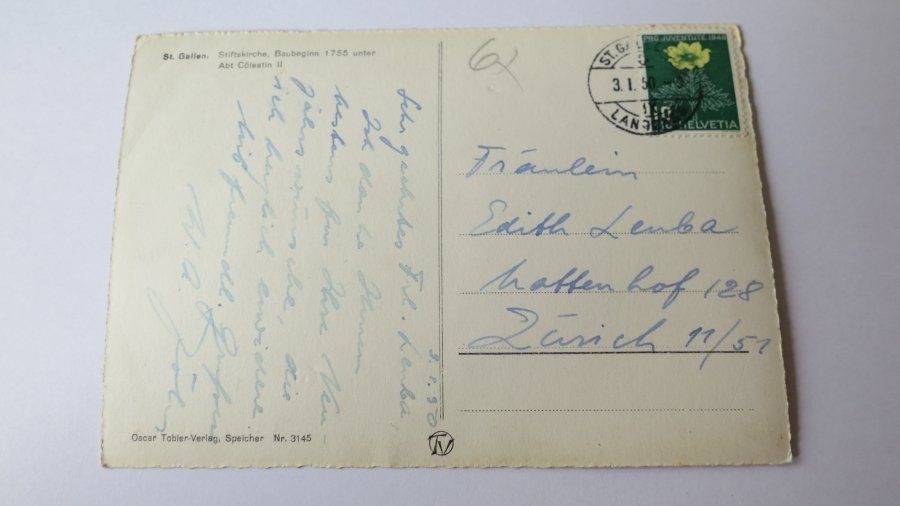 St. Gallen. Stiftskirche, Baubeginn 1755 unter
Abt Cölestin II
3.I.50
Sehr geehrtes Frl. Leuba,
Ich danke Ihnen
bestens für Ihre Neu-
jahrswünsche, die
ich herzlich erwidere
Mit freundl. Grüßen
Oscar Tobler-Verlag, Speicher Nr. 3145
TV
62
ST. GA
3.I.50
LANG
PRO JUVENTUTE 1949
10
HELVETIA
Fräulein
Edith Leuba
Mattenhof 128
Zürich 11/51